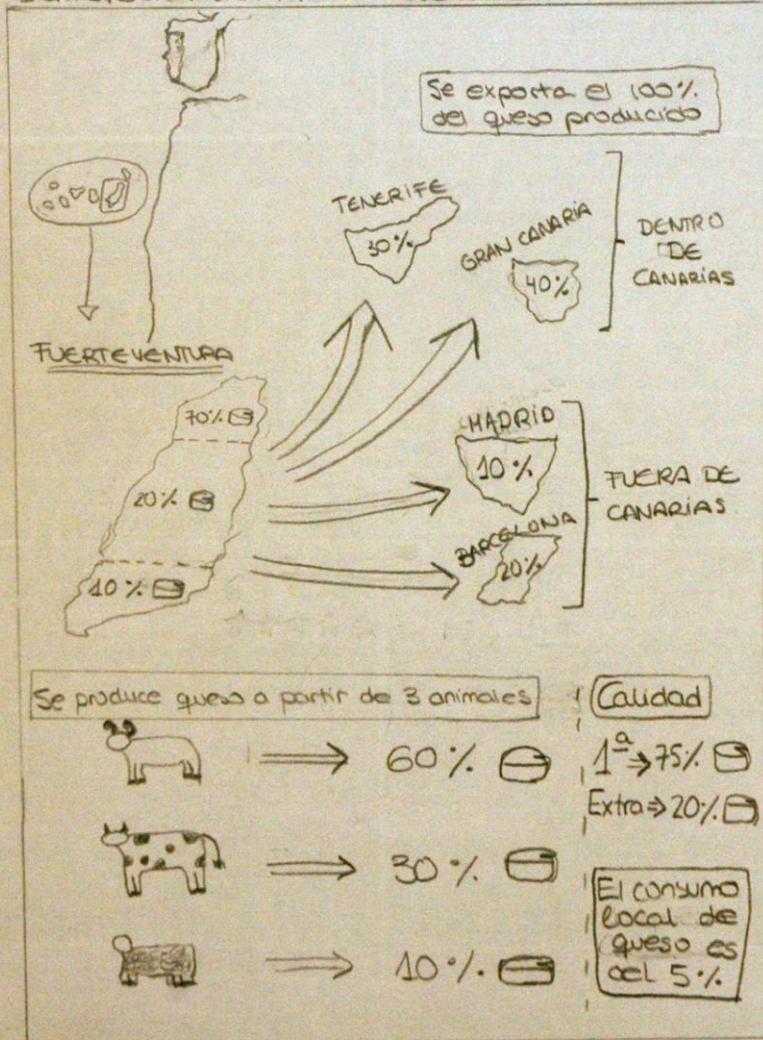 Se exporta el 100%
del queso producido
TENERIFE
30%
GRAN CANARIA
40%
DENTRO
DE
CANARIAS
FUERTEVENTURA
70%
20%
10%
MADRID
10%
BARCELONA
20%
FUERA DE
CANARIAS
Se produce queso a partir de 3 animales
60%
30%
10%
Calidad
1ª ⇒ 75%
Extra ⇒ 20%
El consumo
local de
queso es
del 5%